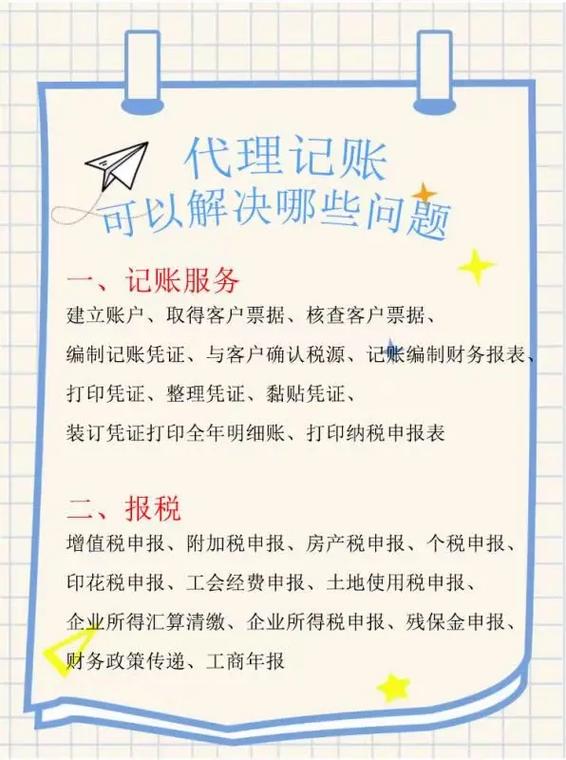 代理记账
可以解决哪些问题
一、记账服务
建立账户、取得客户票据、核查客户票据、
编制记账凭证、与客户确认税源、记账编制财务报表、
打印凭证、整理凭证、黏贴凭证、
装订凭证打印全年明细账、打印纳税申报表
二、报税
增值税申报、附加税申报、房产税申报、个税申报、
印花税申报、工会经费申报、土地使用税申报、
企业所得汇算清缴、企业所得税申报、残保金申报、
财务政策传递、工商年报